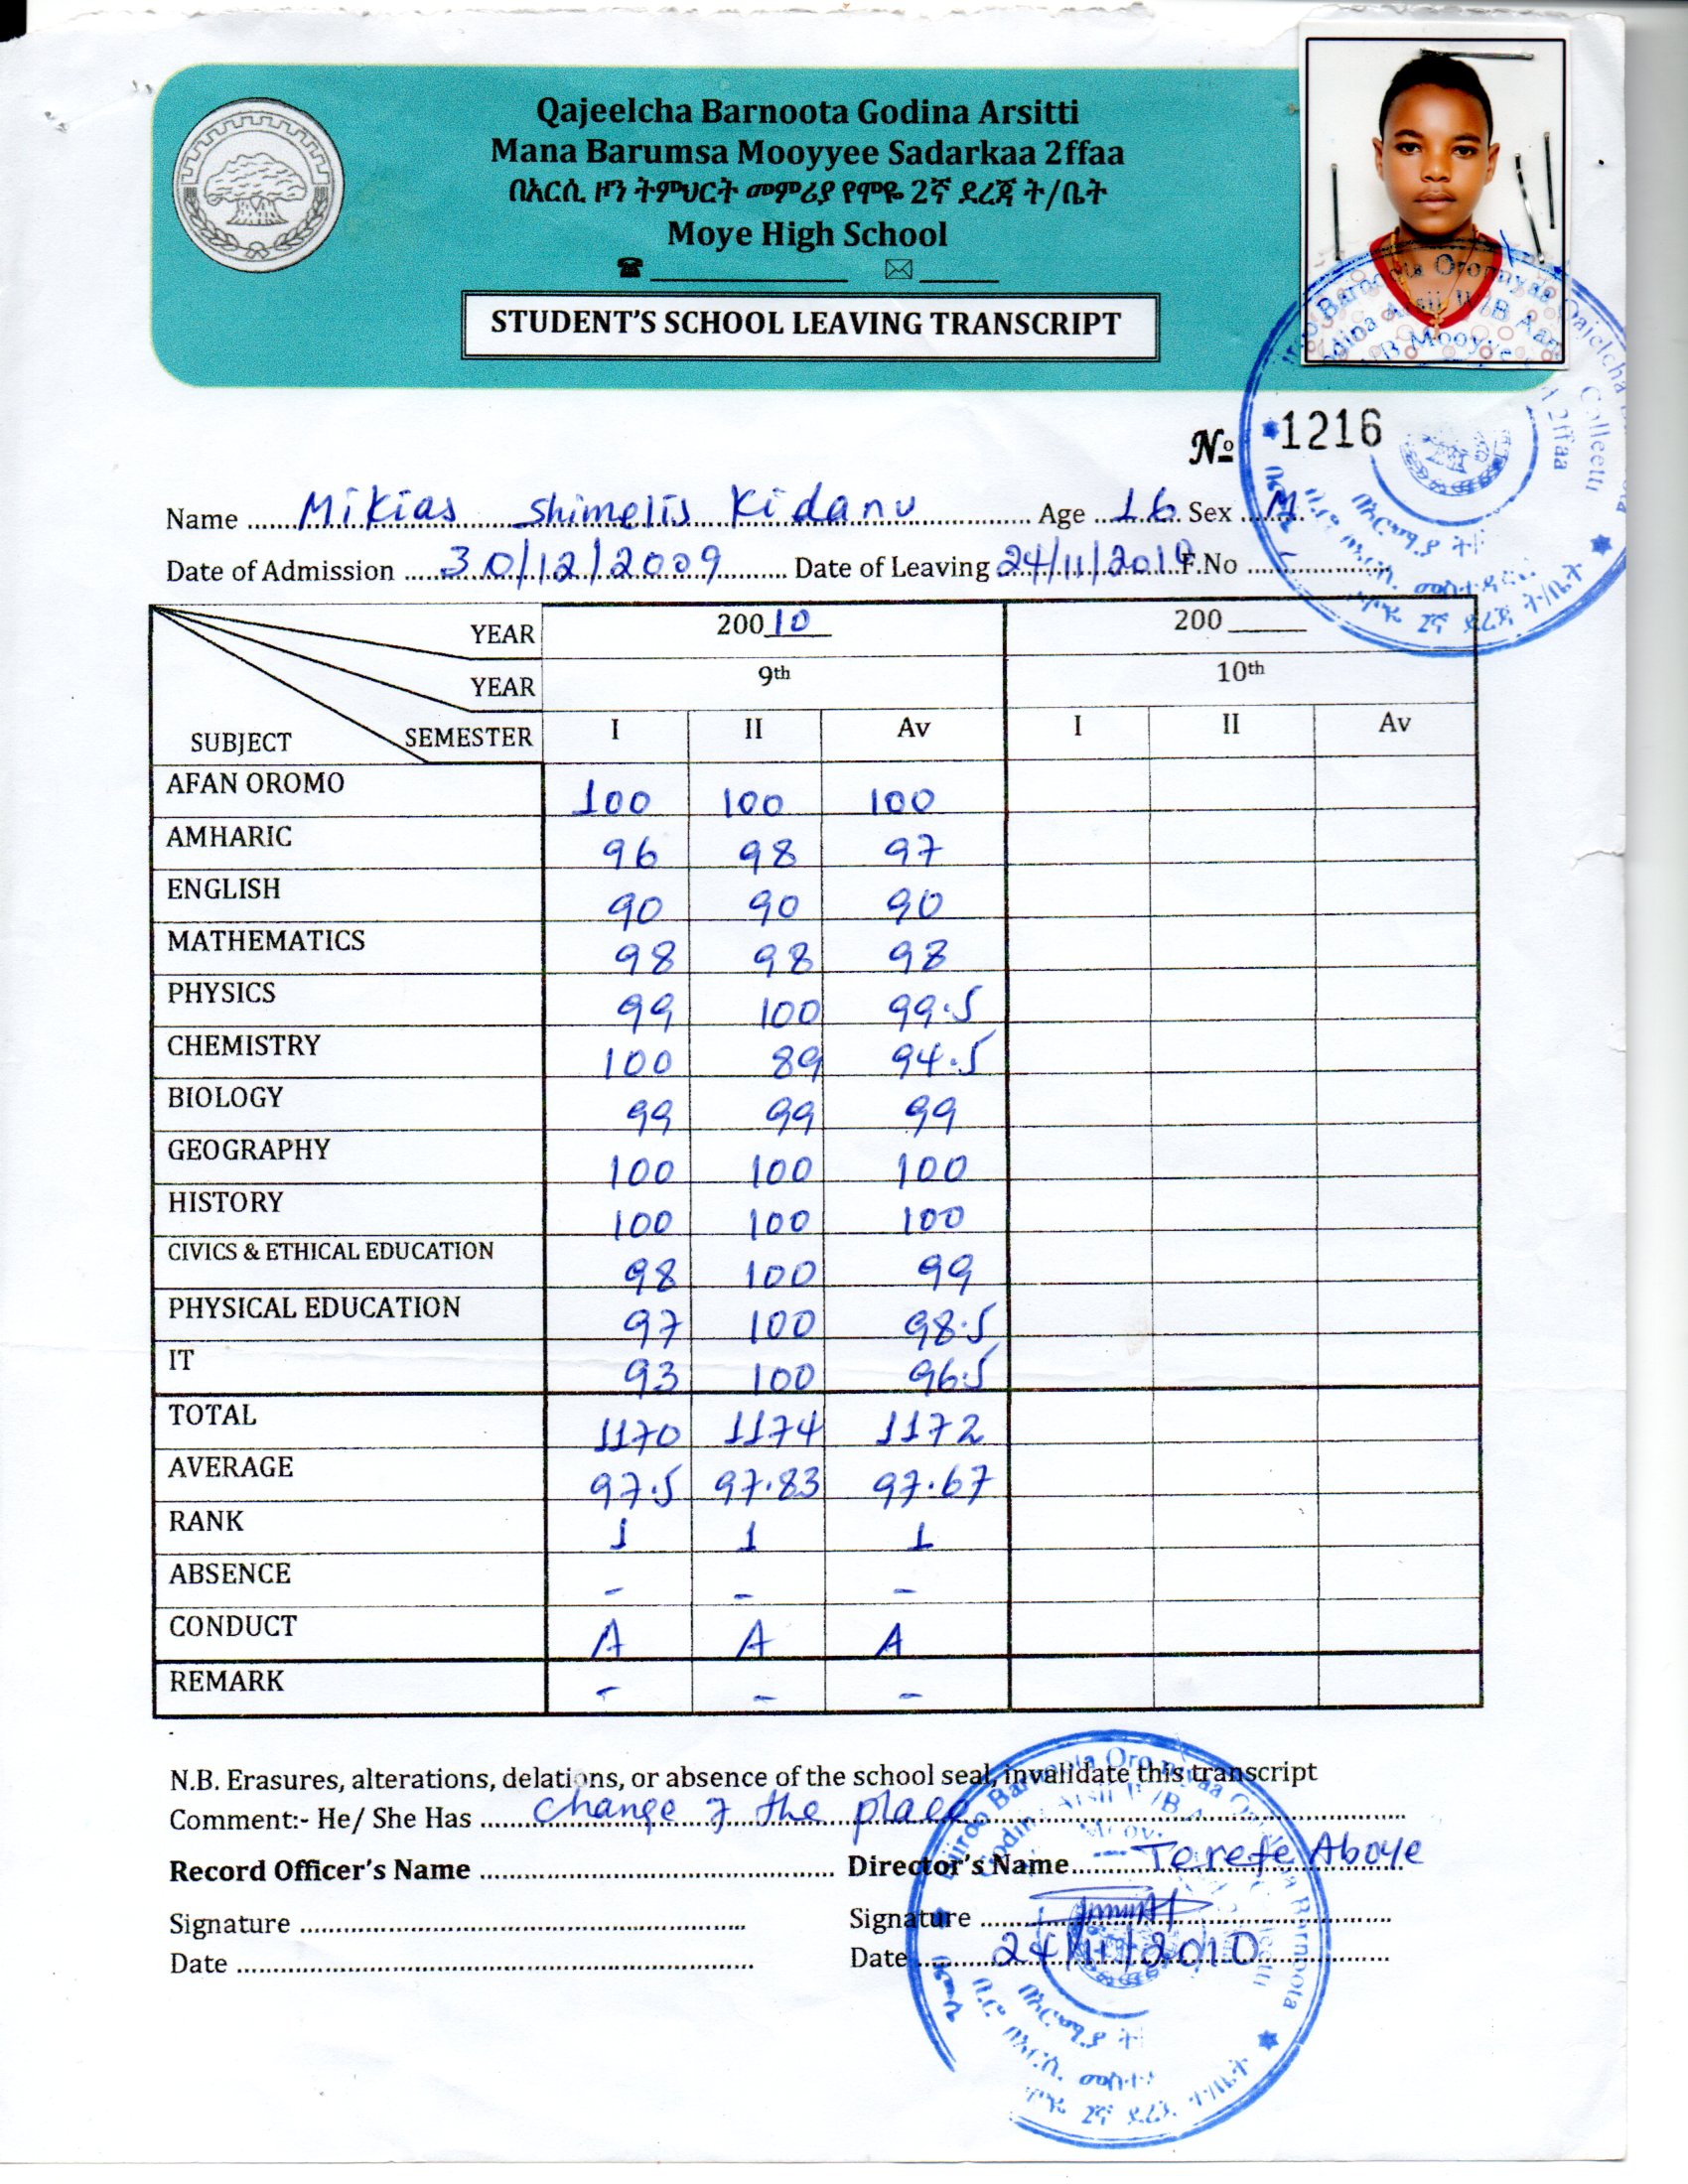 Qajeelcha Barnoota Godina Arsitti
Mana Barumsa Mooyyee Sadarkaa 2ffaa
በአርሲ ዞን ትምህርት መምሪያ የሞዬ 2ኛ ደረጃ ት/ቤት
Moye High School
STUDENT'S SCHOOL LEAVING TRANSCRIPT
№ 1216
Name Mikias Shimelis Kidanu Age 16 Sex M
Date of Admission 30/12/2009 Date of Leaving 24/11/2010 F.No -
YEAR 200 10 200
YEAR 9th 10th
SUBJECT SEMESTER I II Av I II Av
AFAN OROMO 100 100 100
AMHARIC 96 98 97
ENGLISH 90 90 90
MATHEMATICS 98 98 98
PHYSICS 99 100 99.5
CHEMISTRY 100 89 94.5
BIOLOGY 99 99 99
GEOGRAPHY 100 100 100
HISTORY 100 100 100
CIVICS & ETHICAL EDUCATION 98 100 99
PHYSICAL EDUCATION 97 100 98.5
IT 93 100 96.5
TOTAL 1170 1174 1172
AVERAGE 97.5 97.83 97.67
RANK 1 1 1
ABSENCE - - -
CONDUCT A A A
REMARK - - -
N.B. Erasures, alterations, delations, or absence of the school seal, invalidate this transcript
Comment:- He/ She Has change of the place
Record Officer's Name Director's Name Terefe Aboye
Signature Signature
Date Date 24/11/2010